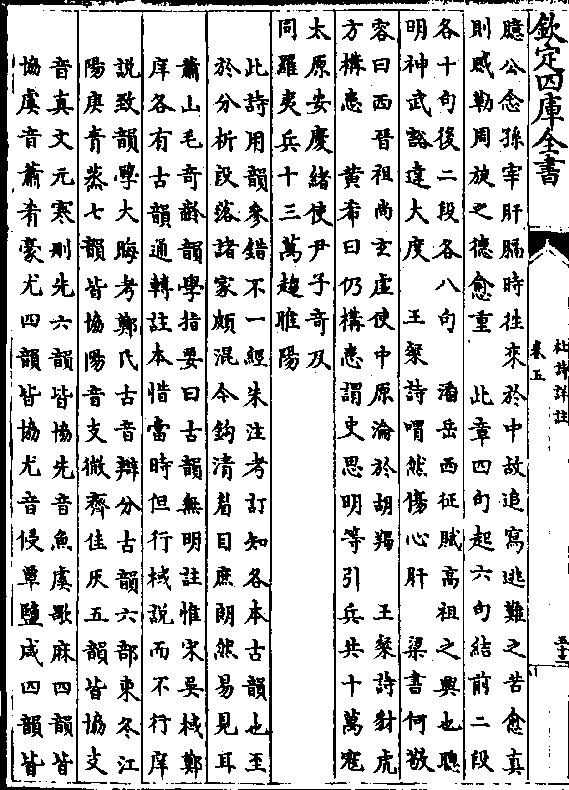 欽定四庫全書
杜詩詳註
卷五
五十三
臆公念孫宰肝膈時徃來於中故追寫逃難之苦愈真
則感勒周旋之德愈重　此章四句起六句結前二段
各十句後二段各八句　潘岳西征賦高祖之興也聰
明神武豁達大度　王粲詩喟然傷心肝　梁書何敬
容曰西晉祖尚玄虛使中原淪於胡羯　王粲詩豺虎
方構患　黄希曰仍構患謂史思明等引兵共十萬冦
太原安慶緒使尹子奇及
同羅夷兵十三萬趨睢陽
此詩用韻參錯不一經朱注考訂知各本古韻也至
於分析段落諸家頗混今鈎清眉目庶朗然易見耳
蕭山毛奇齡韻學指要曰古韻無明註惟宋吳棫鄭
庠各有古韻通轉註本惜當時但行棫說而不行庠
說致韻學大晦考鄭氏古音辯分古韻六部東冬江
陽庚青蒸七韻皆協陽音支微齊佳灰五韻皆協支
音真文元寒刪先六韻皆協先音魚虞歌麻四韻皆
協虞音蕭肴豪尤四韻皆協尤音侵覃鹽咸四韻皆